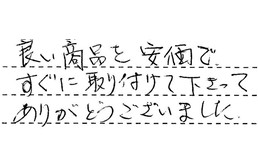 良い商品を安価で
すぐに取り付けて下さって
ありがとうございました.